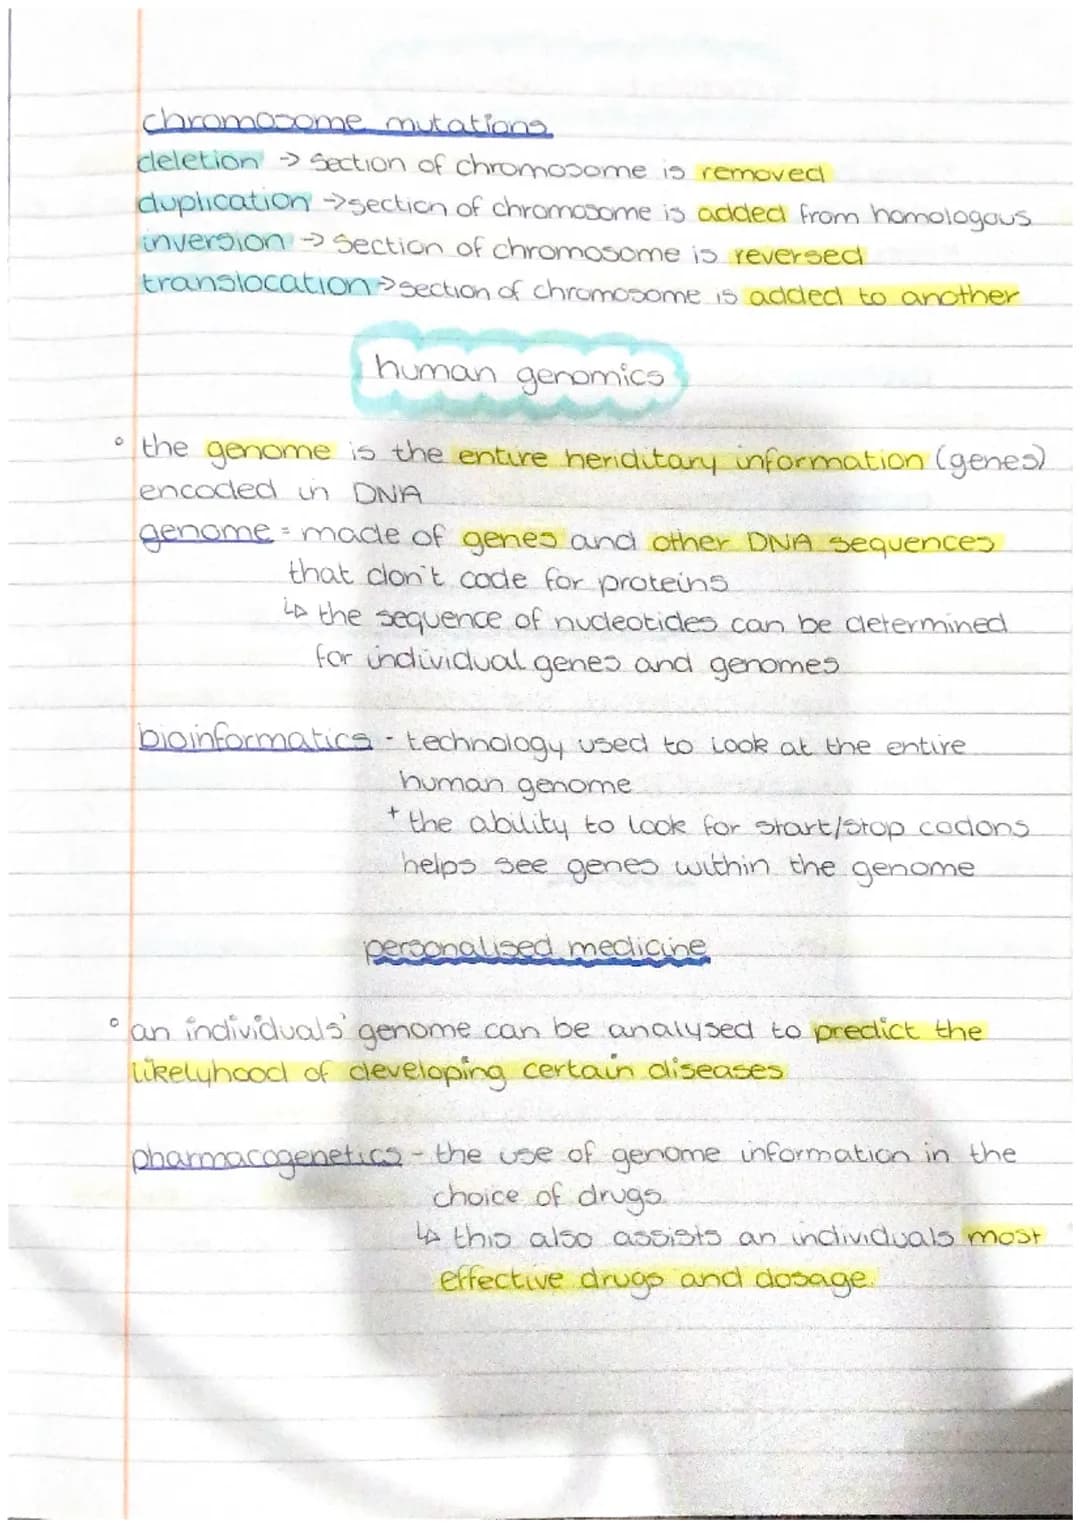 chromosome mutations
deletion → section of chromosome is removed
duplication → section of chromosome is added from homologous
inversion → section of chromosome is reversed
translocation → section of chromosome is added to another
human genomics
° the genome is the entire heriditary information (genes)
encoded in DNA
genome = made of genes and other DNA sequences
that don't code for proteins
↳ the sequence of nucleotides can be determined
for individual genes and genomes
bioinformatics - technology used to look at the entire
human genome
+ the ability to look for start/stop codons
helps see genes within the genome
personalised medicine
° an individuals' genome can be analysed to predict the
likelyhood of developing certain diseases
pharmacogenetics - the use of genome information in the
choice of drugs
↳ this also assists an individuals most
effective drugs and dosage.